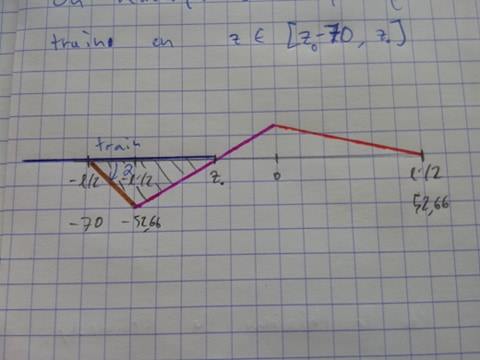 train en z ∈ [z₀-70, z₀]
train
-l/2 2 -l'/2 z₀ 0 l'/2
-70 -52,66 52,66